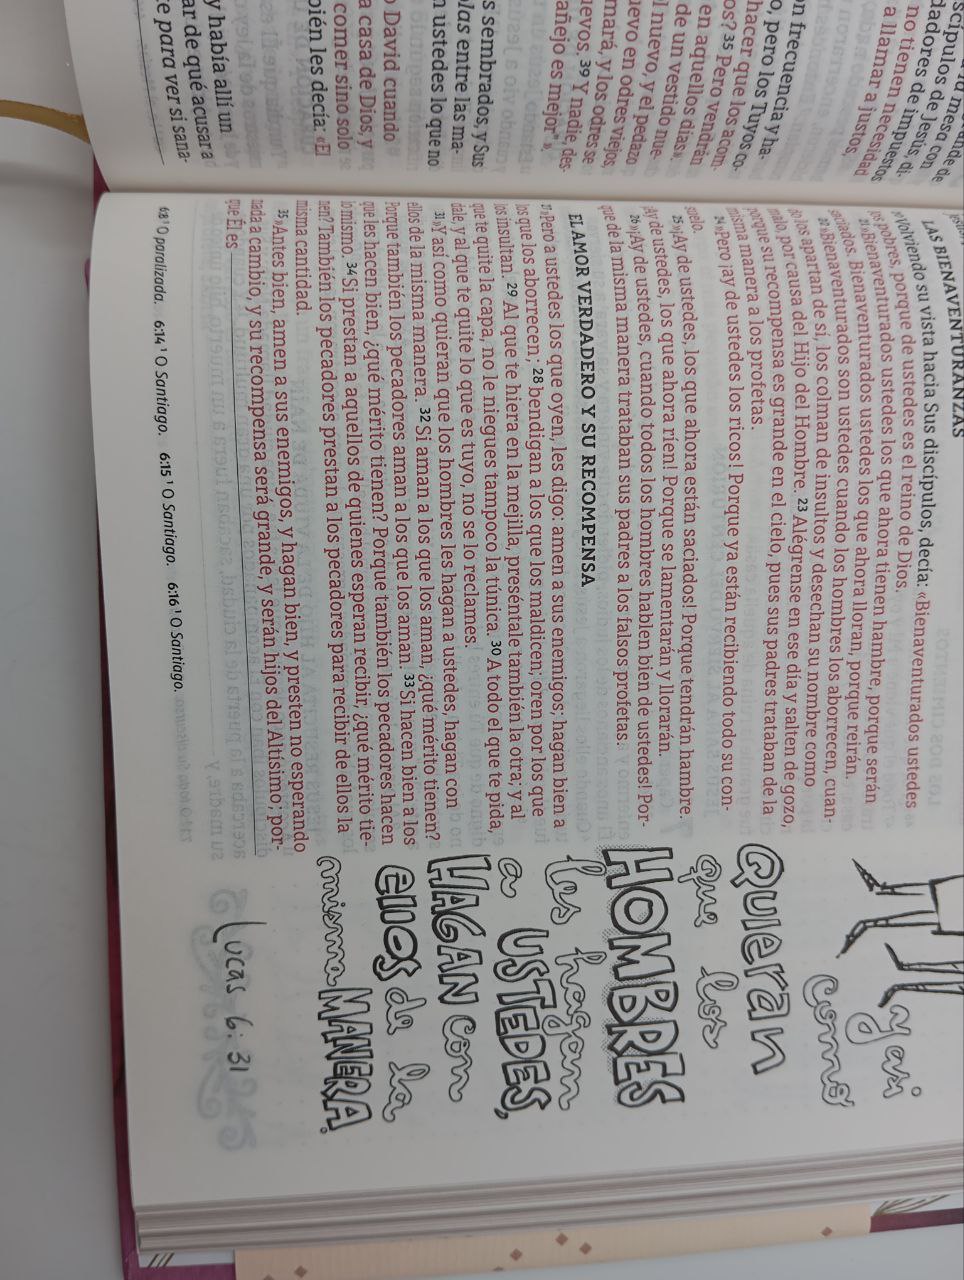 ande de
la mesa
scípulos de Jesús, di-
dadores de impuestos
no tienen necesidad
a llamar a justos,
n frecuencia y ha-
o, pero los Tuyos co-
hacer que los acom-
os? 35 Pero vendrán
en aquellos días».
de un vestido nue-
l nuevo, y el pedazo
uevo en odres viejos,
mará, y los odres se
uevos. 39 Y nadie, des-
añejo es mejor"».
s sembrados, y Sus
las entre las ma-
n ustedes lo que no
o David cuando
a casa de Dios, y
comer sino solo
bién les decía: «El
y había allí un
ar de qué acusar a
te para ver si sana-
LAS BIENAVENTURANZAS
Volviendo su vista hacia Sus discípulos, decía: «Bienaventurados ustedes
los pobres, porque de ustedes es el reino de Dios.
21 »Bienaventurados ustedes los que ahora tienen hambre, porque serán
saciados. Bienaventurados ustedes los que ahora lloran, porque reirán.
22 »Bienaventurados son ustedes cuando los hombres los aborrecen, cuan-
do los apartan de sí, los colman de insultos y desechan su nombre como
malo, por causa del Hijo del Hombre. 23 Alégrense en ese día y salten de gozo,
porque su recompensa es grande en el cielo, pues sus padres trataban de la
misma manera a los profetas.
24 »Pero ¡ay de ustedes los ricos! Porque ya están recibiendo todo su con-
suelo.
25 »¡Ay de ustedes, los que ahora están saciados! Porque tendrán hambre.
¡Ay de ustedes, los que ahora ríen! Porque se lamentarán y llorarán.
26 »¡Ay de ustedes, cuando todos los hombres hablen bien de ustedes! Por-
que de la misma manera trataban sus padres a los falsos profetas.
EL AMOR VERDADERO Y SU RECOMPENSA
27 »Pero a ustedes los que oyen, les digo: amen a sus enemigos; hagan bien a
los que los aborrecen; 28 bendigan a los que los maldicen; oren por los que
los insultan. 29 Al que te hiera en la mejilla, preséntale también la otra; y al
que te quite la capa, no le niegues tampoco la túnica. 30 A todo el que te pida,
dale, y al que te quite lo que es tuyo, no se lo reclames.
31 »Y así como quieran que los hombres les hagan a ustedes, hagan con
ellos de la misma manera. 32 Si aman a los que los aman, ¿qué mérito tienen?
Porque también los pecadores aman a los que los aman. 33 Si hacen bien a los
que les hacen bien, ¿qué mérito tienen? Porque también los pecadores hacen
lo mismo. 34 Si prestan a aquellos de quienes esperan recibir, ¿qué mérito tie-
nen? También los pecadores prestan a los pecadores para recibir de ellos la
misma cantidad.
35 »Antes bien, amen a sus enemigos, y hagan bien, y presten no esperando
nada a cambio, y su recompensa será grande, y serán hijos del Altísimo; por-
que Él es
6:8 1 O paralizada. 6:14 1 O Santiago. 6:15 1 O Santiago. 6:16 1 O Santiago.
y así
como
QUIERAN
que los
HOMBRES
les hagan
a USTEDES,
HAGAN con
ellos de la
misma MANERA.
Lucas 6:31